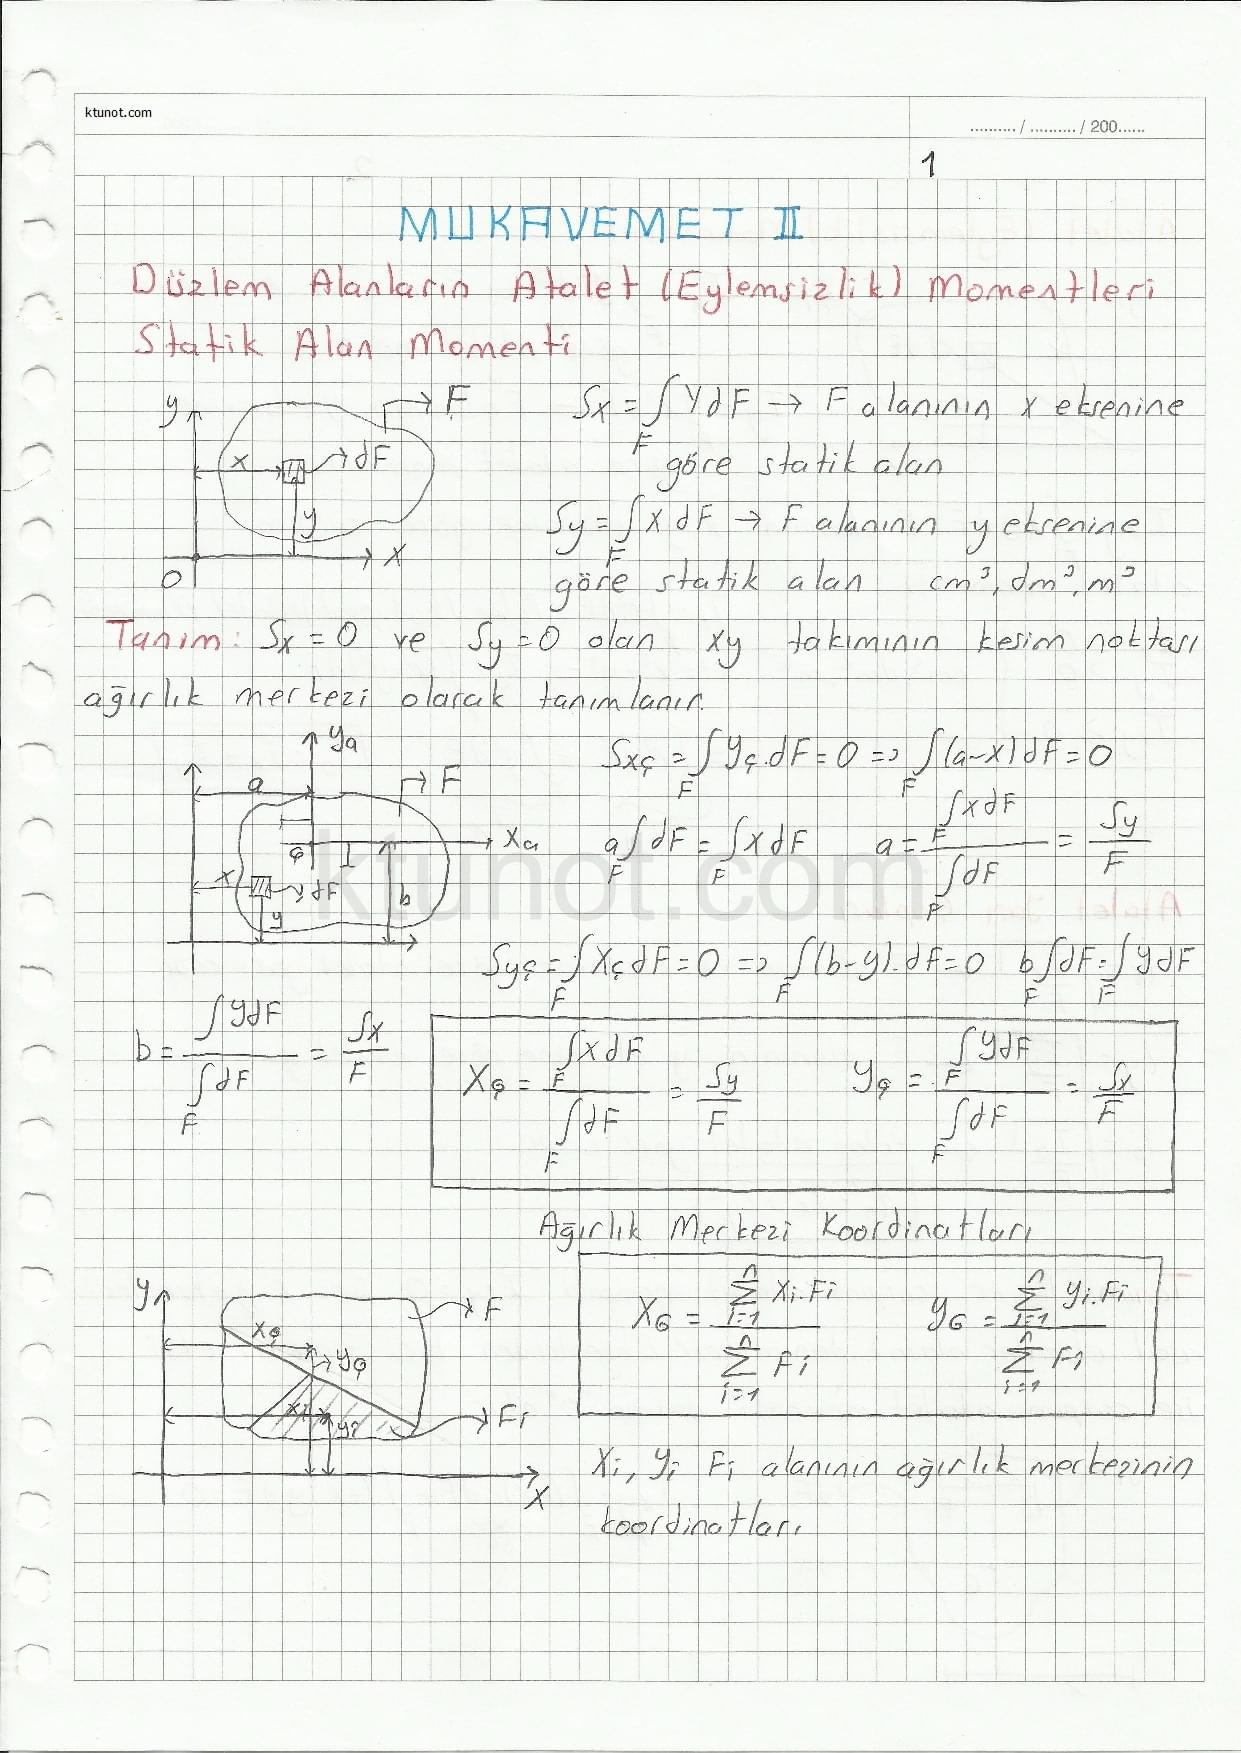 ktunot.com
.......... / .......... / 200......
1
MUKAVEMET II
Düzlem Alanların Atalet (Eylemsizlik) Momentleri
Statik Alan Momenti
y F
x dF
y
O x
Sx = ∫F y dF → F alanının x eksenine
göre statik alan
Sy = ∫F x dF → F alanının y eksenine
göre statik alan cm³, dm³, m³
Tanım: Sx = 0 ve Sy = 0 olan xy takımının kesim noktası
ağırlık merkezi olarak tanımlanır.
a F
x dF b
y
Sxç = ∫F yç.dF = 0 => ∫F (a-x)dF = 0
a∫F dF = ∫F x dF a = ∫F x dF / ∫F dF = Sy / F
ktunot.com
Syç = ∫F xç dF = 0 => ∫F (b-y).dF = 0 b∫F dF = ∫F y dF
b = ∫ y dF / ∫F dF = Sx / F
Xç = ∫F x dF / ∫F dF = Sy / F yç = ∫F y dF / ∫F dF = Sx / F
Ağırlık Merkezi Koordinatları
y F
Xç
yç
Fi
x
XG = Σ(i=1..n) xi.Fi / Σ(i=1..n) Fi yG = Σ(i=1..n) yi.Fi / Σ(i=1..n) Fi
Xi, yi Fi alanının ağırlık merkezinin
koordinatları